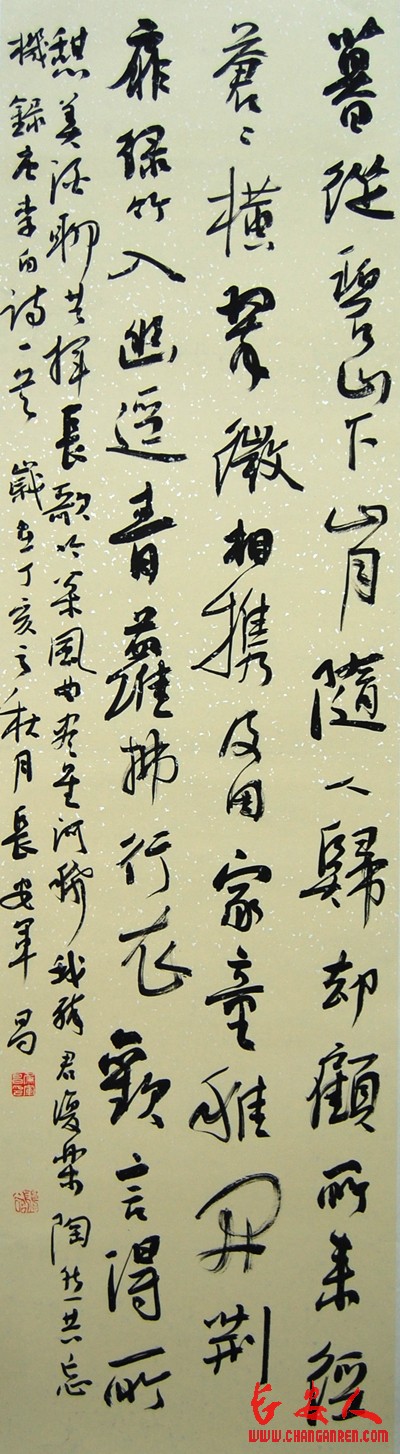 暮從碧山下山月隨人歸却顧所來徑
蒼々橫翠微相攜及田家童稚開荊
扉綠竹入幽逕青蘿拂行衣歡言得所
憩美酒聊共揮長歌吟松風曲盡星河稀我醉君復樂陶然共忘
機錄唐李白詩一首 歲在丁亥之秋月長安軍昌
长安人
www.CHANGANREN.com